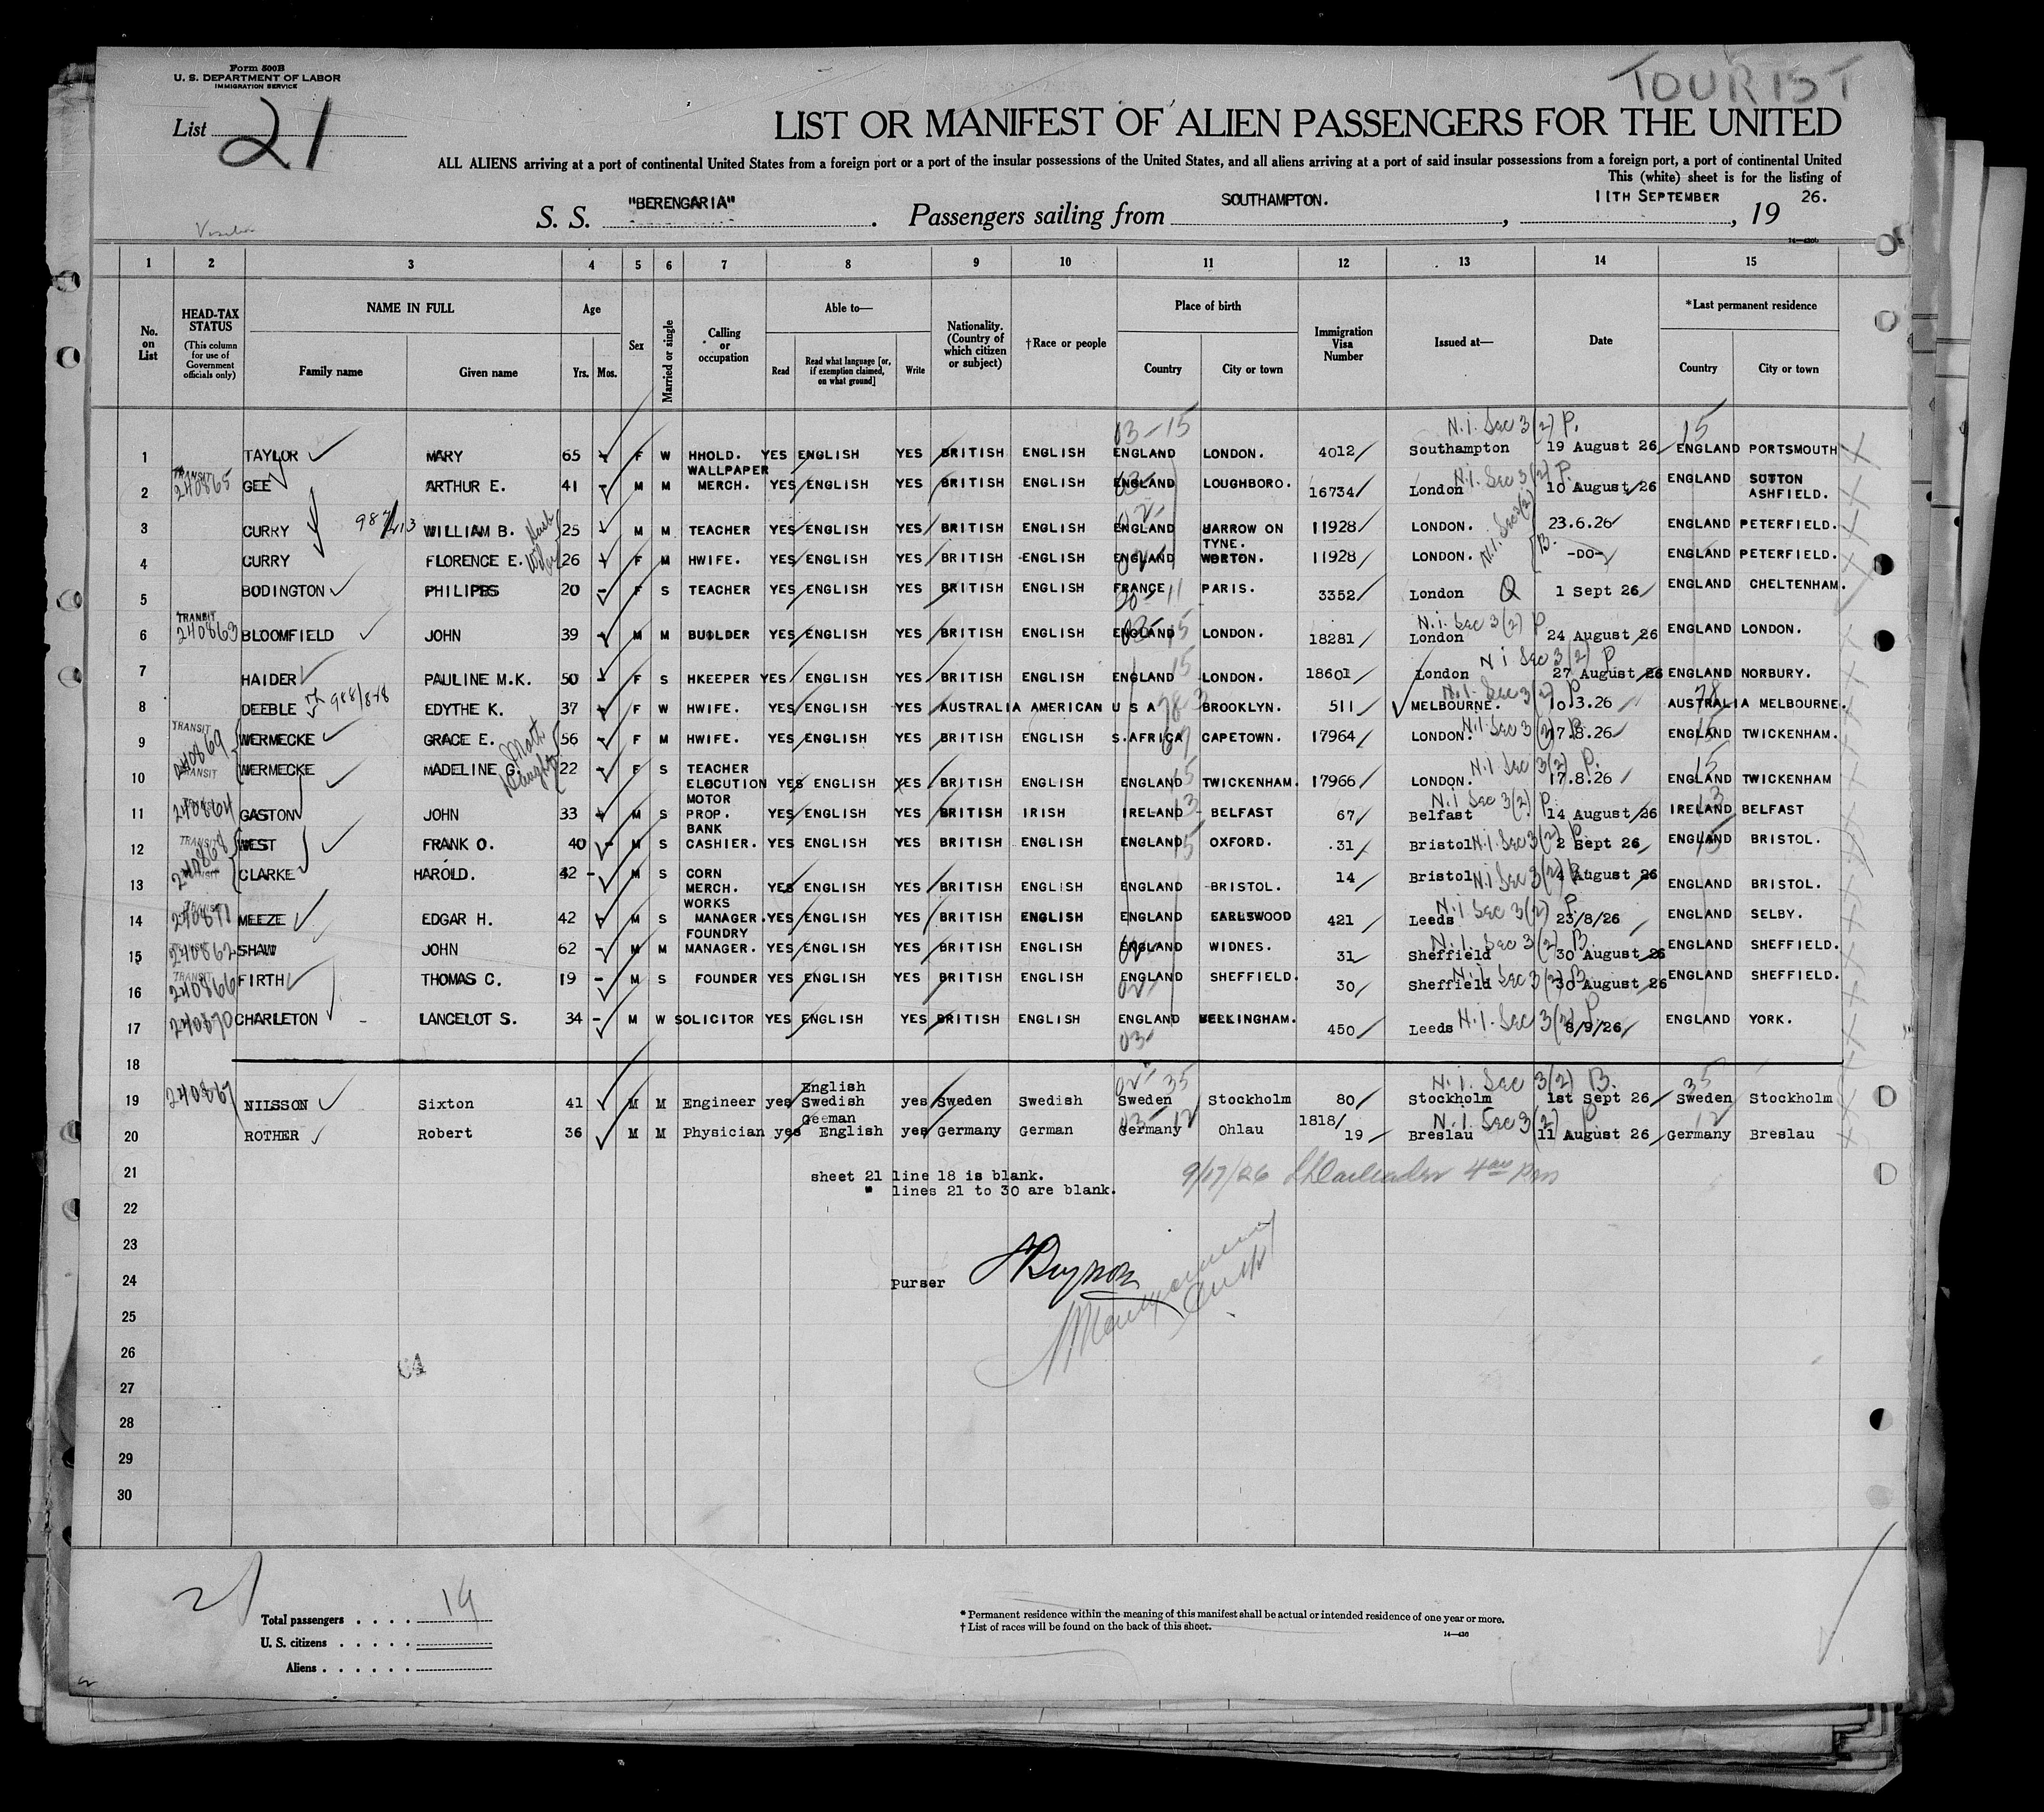 Form 500B
U. S. DEPARTMENT OF LABOR
IMMIGRATION SERVICE
TOURIST
List 21
LIST OR MANIFEST OF ALIEN PASSENGERS FOR THE UNITED
ALL ALIENS arriving at a port of continental United States from a foreign port or a port of the insular possessions of the United States, and all aliens arriving at a port of said insular possessions from a foreign port, a port of continental United
This (white) sheet is for the listing of
S. S. "BERENGARIA" . Passengers sailing from SOUTHAMPTON. , 11TH SEPTEMBER , 19 26.
14—430b
1 2 3 4 5 6 7 8 9 10 11 12 13 14 15
No. on List
HEAD-TAX STATUS (This column for use of Government officials only)
NAME IN FULL
Family name Given name
Age
Yrs. Mos.
Sex
Married or single
Calling or occupation
Able to—
Read Read what language [or, if exemption claimed, on what ground] Write
Nationality. (Country of which citizen or subject)
†Race or people
Place of birth
Country City or town
Immigration Visa Number
Issued at—
Date
*Last permanent residence
Country City or town
03-15 N.I. Sec 3(2) P. 15
1 TAYLOR MARY 65 - F W HHOLD. YES ENGLISH YES BRITISH ENGLISH ENGLAND LONDON. 4012 Southampton 19 August 26 ENGLAND PORTSMOUTH
2 TRANSIT 240865 GEE ARTHUR E. 41 - M M WALLPAPER MERCH. YES ENGLISH YES BRITISH ENGLISH ENGLAND LOUGHBORO. 16734 London N.I. Sec 3(2) P. 10 August 26 ENGLAND SUTTON ASHFIELD.
3 CURRY 987/413 WILLIAM B. 25 - M M TEACHER YES ENGLISH YES BRITISH ENGLISH ENGLAND HARROW ON TYNE. 11928 LONDON. N.I. Sec 3(2) 23.6.26 ENGLAND PETERFIELD.
4 CURRY FLORENCE E. 26 F M HWIFE. YES ENGLISH YES BRITISH ENGLISH ENGLAND WORTON. 11928 LONDON. B. -DO- ENGLAND PETERFIELD.
5 BODINGTON PHILIPPS 20 - F S TEACHER YES ENGLISH YES BRITISH ENGLISH FRANCE PARIS. 3352 London Q 1 Sept 26 ENGLAND CHELTENHAM.
6 TRANSIT 240863 BLOOMFIELD JOHN 39 M M BUILDER YES ENGLISH YES BRITISH ENGLISH ENGLAND LONDON. 18281 London N.I. Sec 3(2) P 24 August 26 ENGLAND LONDON.
7 HAIDER PAULINE M.K. 50 - F S HKEEPER YES ENGLISH YES BRITISH ENGLISH ENGLAND LONDON. 18601 London N I Sec 3(2) P 27 August 26 ENGLAND NORBURY.
8 DEEBLE 988/878 EDYTHE K. 37 F W HWIFE. YES ENGLISH YES AUSTRALIA AMERICAN U S A BROOKLYN. 511 MELBOURNE. N.I. Sec 3(2) P 10.3.26 AUSTRALIA MELBOURNE.
9 TRANSIT 240869 WERMECKE GRACE E. 56 - F M HWIFE. YES ENGLISH YES BRITISH ENGLISH S.AFRICA CAPETOWN. 17964 LONDON. N.I. Sec 3(2) 17.8.26 ENGLAND TWICKENHAM.
10 TRANSIT WERMECKE MADELINE G. Daughter 22 - F S TEACHER ELOCUTION YES ENGLISH YES BRITISH ENGLISH ENGLAND TWICKENHAM. 17966 LONDON. N.I Sec 3(2) P. 17.8.26 ENGLAND TWICKENHAM
11 240864 GASTON JOHN 33 M S MOTOR PROP. YES ENGLISH YES BRITISH IRISH IRELAND BELFAST 67 Belfast N.I Sec 3(2) P. 14 August 26 IRELAND BELFAST
12 TRANSIT 240868 WEST FRANK O. 40 - M S BANK CASHIER. YES ENGLISH YES BRITISH ENGLISH ENGLAND OXFORD. 31 Bristol N.I. Sec 3(2) P. 2 Sept 26 ENGLAND BRISTOL.
13 CLARKE HAROLD. 42 - M S CORN MERCH. YES ENGLISH YES BRITISH ENGLISH ENGLAND BRISTOL. 14 Bristol N.I Sec 3(2) August 26 ENGLAND BRISTOL.
14 240871 MEEZE EDGAR H. 42 M S WORKS MANAGER. YES ENGLISH YES BRITISH ENGLISH ENGLAND EARLSWOOD 421 Leeds N.I Sec 3(2) P. 23/8/26 ENGLAND SELBY.
15 240862 SHAW JOHN 62 - M M FOUNDRY MANAGER. YES ENGLISH YES BRITISH ENGLISH ENGLAND WIDNES. 31 Sheffield N.I. Sec 3(2) B. 30 August 26 ENGLAND SHEFFIELD.
16 TRANSIT 240866 FIRTH THOMAS C. 19 - M S FOUNDER YES ENGLISH YES BRITISH ENGLISH ENGLAND SHEFFIELD. 30 Sheffield N.I. Sec 3(2) B 30 August 26 ENGLAND SHEFFIELD.
17 240870 CHARLETON LANCELOT S. 34 - M W SOLICITOR YES ENGLISH YES BRITISH ENGLISH ENGLAND BELLINGHAM. 450 Leeds N.I. Sec 3(2) P. 8/9/26 ENGLAND YORK.
18
19 240867 NILSSON Sixton 41 M M Engineer yes English Swedish yes Sweden Swedish Sweden Stockholm 80 Stockholm N.I. Sec 3(2) B. 1st Sept 26 Sweden Stockholm
20 ROTHER Robert 36 M M Physician yes German English yes Germany German Germany Ohlau 1818/19 Breslau N.I. Sec 3(2) P 11 August 26 Germany Breslau
21 sheet 21 line 18 is blank. 9/17/26
" lines 21 to 30 are blank.
22
23
24 Purser
25
26
27
28
29
30
21
Total passengers . . . . 19
U. S. citizens . . . . .
Aliens . . . . . .
* Permanent residence within the meaning of this manifest shall be actual or intended residence of one year or more.
† List of races will be found on the back of this sheet.
14—430